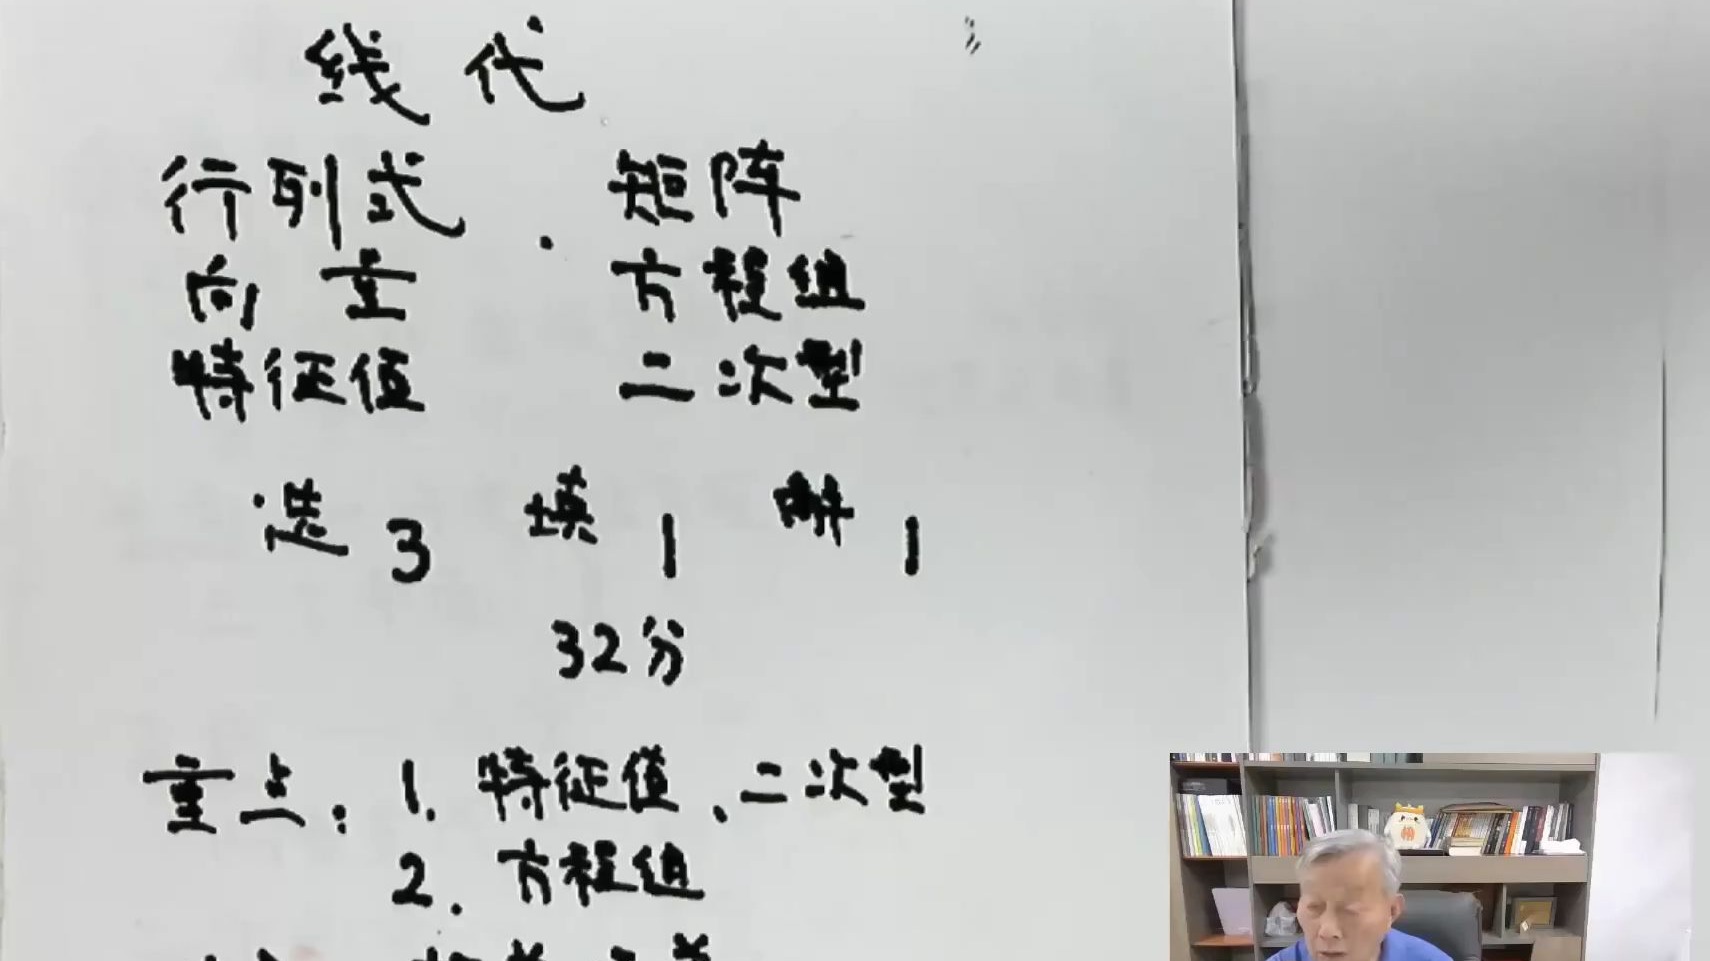 线代
行列式． 矩阵
向量 方程组
特征值 二次型
选3 填1 解1
32分
重点：1. 特征值、二次型
2. 方程组